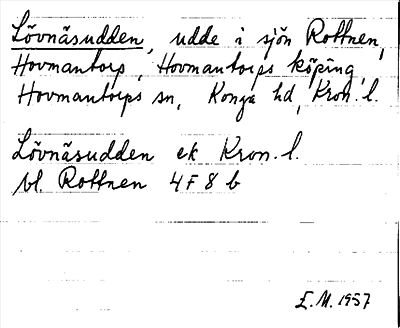 Lövnäsudden, udde i sjön Rottnen,
Hovmantorp, Hovmantorps köping,
Hovmantorps sn, Konga hd, Kron. l.
Lövnäsudden ek Kron. l.
bl. Rottnen 4F8b
E.M. 1957